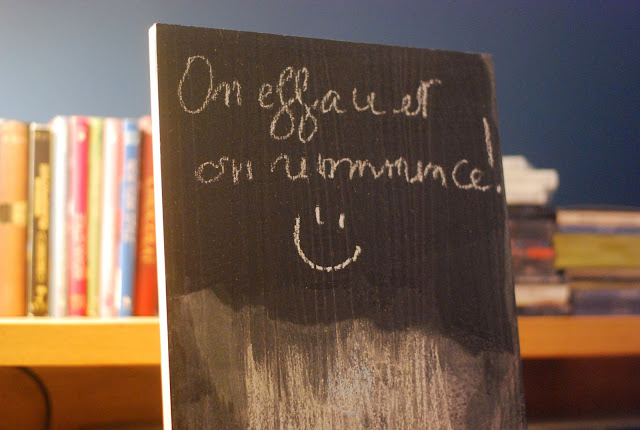 On efface et
on recommence!